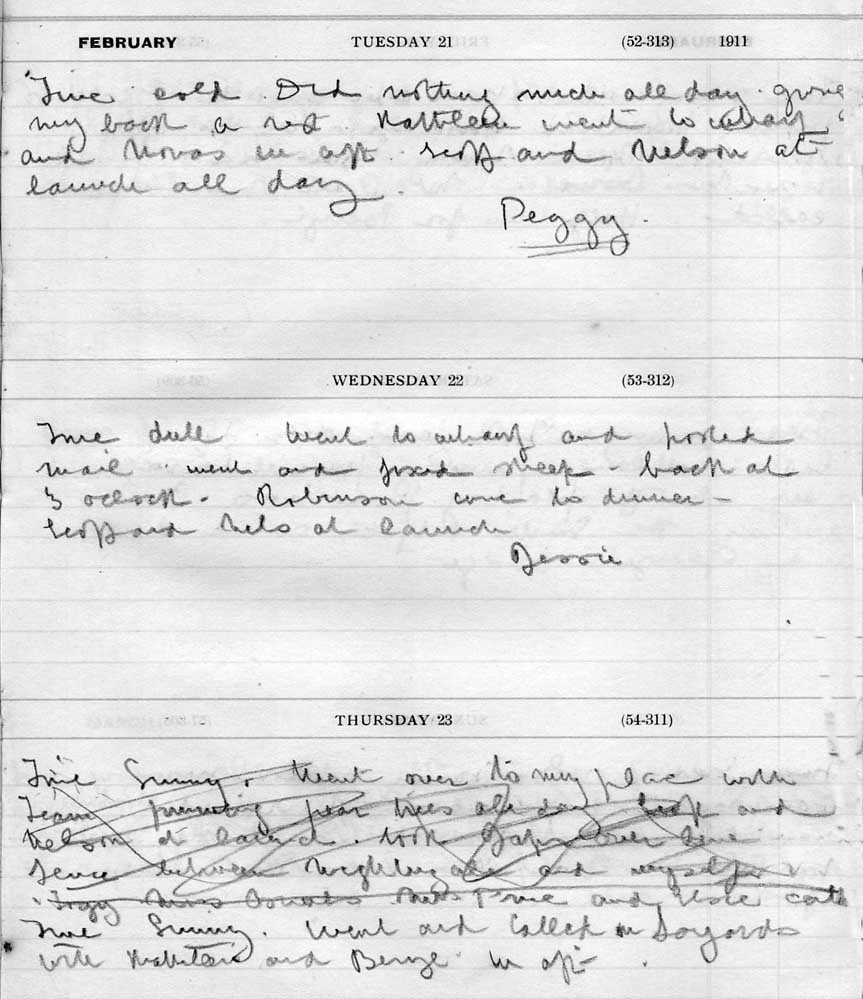 FEBRUARY TUESDAY 21 (52-313) 1911
Fine cold. Did nothing much all day. give
my back a rest. Kathleen went to wharf
and Novas in aft. Scoff and Nelson at
launch all day
Peggy.
WEDNESDAY 22 (53-312)
Fine dull. Went to wharf and posted
mail. went and fixed sheep - back at
3 oclock. Robinson come to dinner -
Scoff and Nels at launch
Bessie
THURSDAY 23 (54-311)
Fine Sunny. Went over to my place with
Team pruning pear trees all day Scoff and
Nelson at launch. took Japs over line
fence between and myself
Miss and Elsie
Fine Sunny. Went and called on
with and in aft.